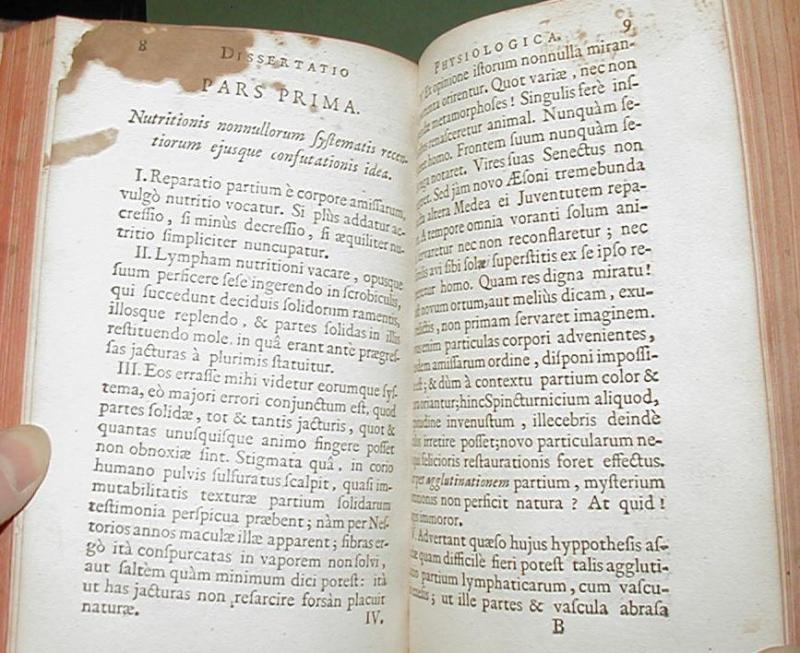 8
DISSERTATIO
PARS PRIMA.
Nutritionis nonnullorum systematis recen-
tiorum ejusque confutationis idea.
I. Reparatio partium è corpore amissarum,
vulgò nutritio vocatur. Si plùs addatur ac-
cressio, si minùs decressio, si æquiliter nu-
tritio simpliciter nuncupatur.
II. Lympham nutritioni vacare, opusque
suum perficere sese ingerendo in scrobiculis,
qui succedunt deciduis solidorum ramentis,
illosque replendo, & partes solidas in illis
restituendo mole, in quâ erant antè prægres-
sas jacturas à plurimis statuitur.
III. Eos errasse mihi videtur eorumque sys-
tema, eò majori errori conjunctum est, quod
partes solidæ, tot & tantis jacturis, quot &
quantas unusquisque animo fingere posset
non obnoxiæ sint. Stigmata quâ, in corio
humano pulvis sulfuratus scalpit, quasi im-
mutabilitatis texturæ partium solidarum
testimonia perspicua præbent; nàm per Nes-
torios annos maculæ illæ apparent; fibras er-
gò ità conspurcatas in vaporem non solvi,
aut saltèm quàm minimum dici potest: ità
ut has jacturas non resarcire forsàn placuit
naturæ.
IV.
9
PHYSIOLOGICA.
Ex opinione istorum nonnulla miran-
orirentur. Quot variæ, nec non
metamorphoses! Singulis ferè ins-
renasceretur animal. Nunquàm se-
homo. Frontem suum nunquàm se-
notaret. Vires suas Senectus non
Sed jàm novo Æsoni tremebunda
altera Medea ei Juventutem repa-
A tempore omnia voranti solum ani-
nec non reconflaretur; nec
avi sibi solæ superstitis ex se ipso re-
homo. Quam res digna miratu!
novum ortum, aut meliùs dicam, exu-
non primam servaret imaginem.
enim particulas corpori advenientes,
amissarum ordine, disponi impossi-
& dùm à contextu partium color &
oriantur; hinc Spincturnicium aliquod,
invenustum, illecebris deindè
irretire posset; novo particularum ne-
felicioris restaurationis foret effectus.
per agglutinationem partium, mysterium
non perficit natura? At quid!
immoror.
Advertant quæso hujus hyppothesis as-
quam difficilè fieri potest talis aggluti-
partium lymphaticarum, cum vascu-
ut ille partes & vascula abrasa
B